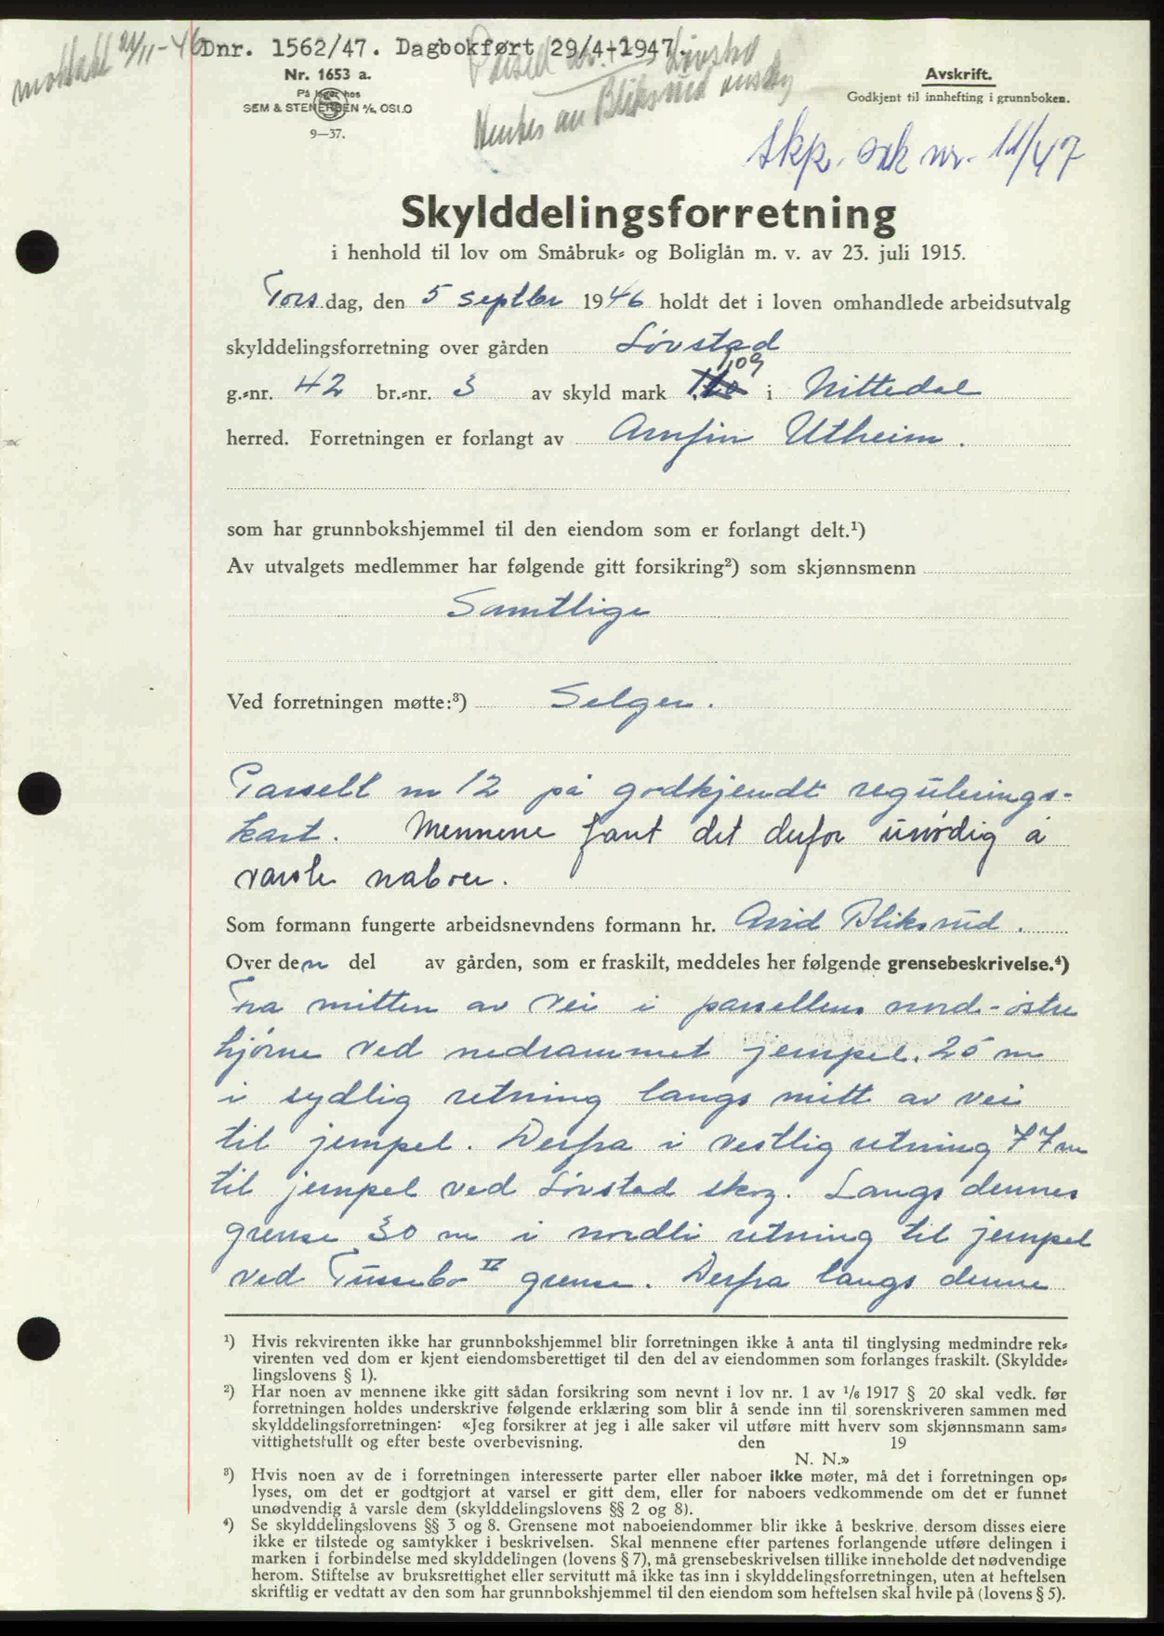 mottatt 21/11-46 Dnr. 1562/47. Dagbokført 29/4-1947.
Parsell av Løvstad
Hentes av Bliksrud
Nr. 1653 a.
På lager hos
SEM & STENERSEN A/S, OSLO
9—37.
Avskrift.
Godkjent til innhefting i grunnboken.
skp. sak nr. 11/47
Skylddelingsforretning
i henhold til lov om Småbruk- og Boliglån m. v. av 23. juli 1915.
Tors dag, den 5 septbr 1946 holdt det i loven omhandlede arbeidsutvalg
skylddelingsforretning over gården Løvstad
1,09
g.-nr. 42 br.-nr. 3 av skyld mark i Nittedal
herred. Forretningen er forlangt av Arnfin Utheim.
som har grunnbokshjemmel til den eiendom som er forlangt delt.¹)
Av utvalgets medlemmer har følgende gitt forsikring²) som skjønnsmenn
Samtlige
Ved forretningen møtte:³) Selger.
Parsell nr 12 på godkjendt regulerings-
kart. Mennene fant det derfor unødig å
varsle naboer.
Som formann fungerte arbeidsnevndens formann hr. Arvid Bliksrud.
Over den del av gården, som er fraskilt, meddeles her følgende grensebeskrivelse.⁴)
Fra mitten av vei i parsellens nord-østre
hjørne ved nedrammet jernpel. 25 m
i sydlig retning langs mitt av vei
til jernpel. Derfra i vestlig retning 77 m
til jernpel ved Løvstad skog. Langs dennes
grense 30 m i nordli retning til jernpel
ved Tussebo IV grense. Derfra langs denne
¹) Hvis rekvirenten ikke har grunnbokshjemmel blir forretningen ikke å anta til tinglysing medmindre rek-
virenten ved dom er kjent eiendomsberettiget til den del av eiendommen som forlanges fraskilt. (Skyldde-
lingslovens § 1).
²) Har noen av mennene ikke gitt sådan forsikring som nevnt i lov nr. 1 av 1/6 1917 § 20 skal vedk. før
forretningen holdes underskrive følgende erklæring som blir å sende inn til sorenskriveren sammen med
skylddelingsforretningen: «Jeg forsikrer at jeg i alle saker vil utføre mitt hverv som skjønnsmann sam-
vittighetsfullt og efter beste overbevisning. den 19
N. N.»
³) Hvis noen av de i forretningen interesserte parter eller naboer ikke møter, må det i forretningen op-
lyses, om det er godtgjort at varsel er gitt dem, eller for naboers vedkommende om det er funnet
unødvendig å varsle dem (skylddelingslovens §§ 2 og 8).
⁴) Se skylddelingslovens §§ 3 og 8. Grensene mot naboeiendommer blir ikke å beskrive, dersom disses eiere
ikke er tilstede og samtykker i beskrivelsen. Skal mennene efter partenes forlangende utføre delingen i
marken i forbindelse med skylddelingen (lovens § 7), må grensebeskrivelsen tillike inneholde det nødvendige
herom. Stiftelse av bruksrettighet eller servitutt må ikke tas inn i skylddelingsforretningen, uten at heftelsen
skriftlig er vedtatt av den som har grunnbokshjemmel til den eiendom som heftelsen skal hvile på (lovens § 5).